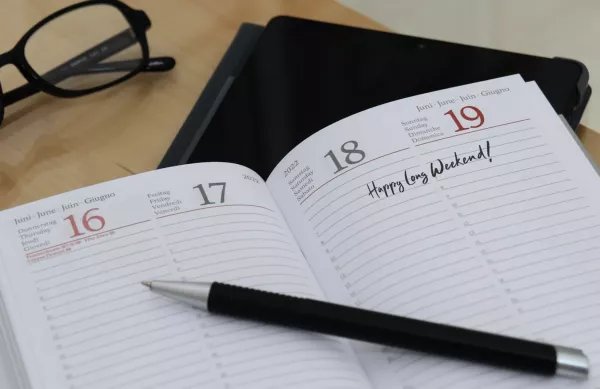 Juni · June · Juin · Giugno
Donnerstag
Thursday
Jeudi
Giovedì
16
Freitag
Friday
Vendredi
Venerdì
17
2022
Samstag
Saturday
Samedi
Sabato
18
Juni · June · Juin · Giugno
Sonntag
Sunday
Dimanche
Domenica
19
Happy Long Weekend!